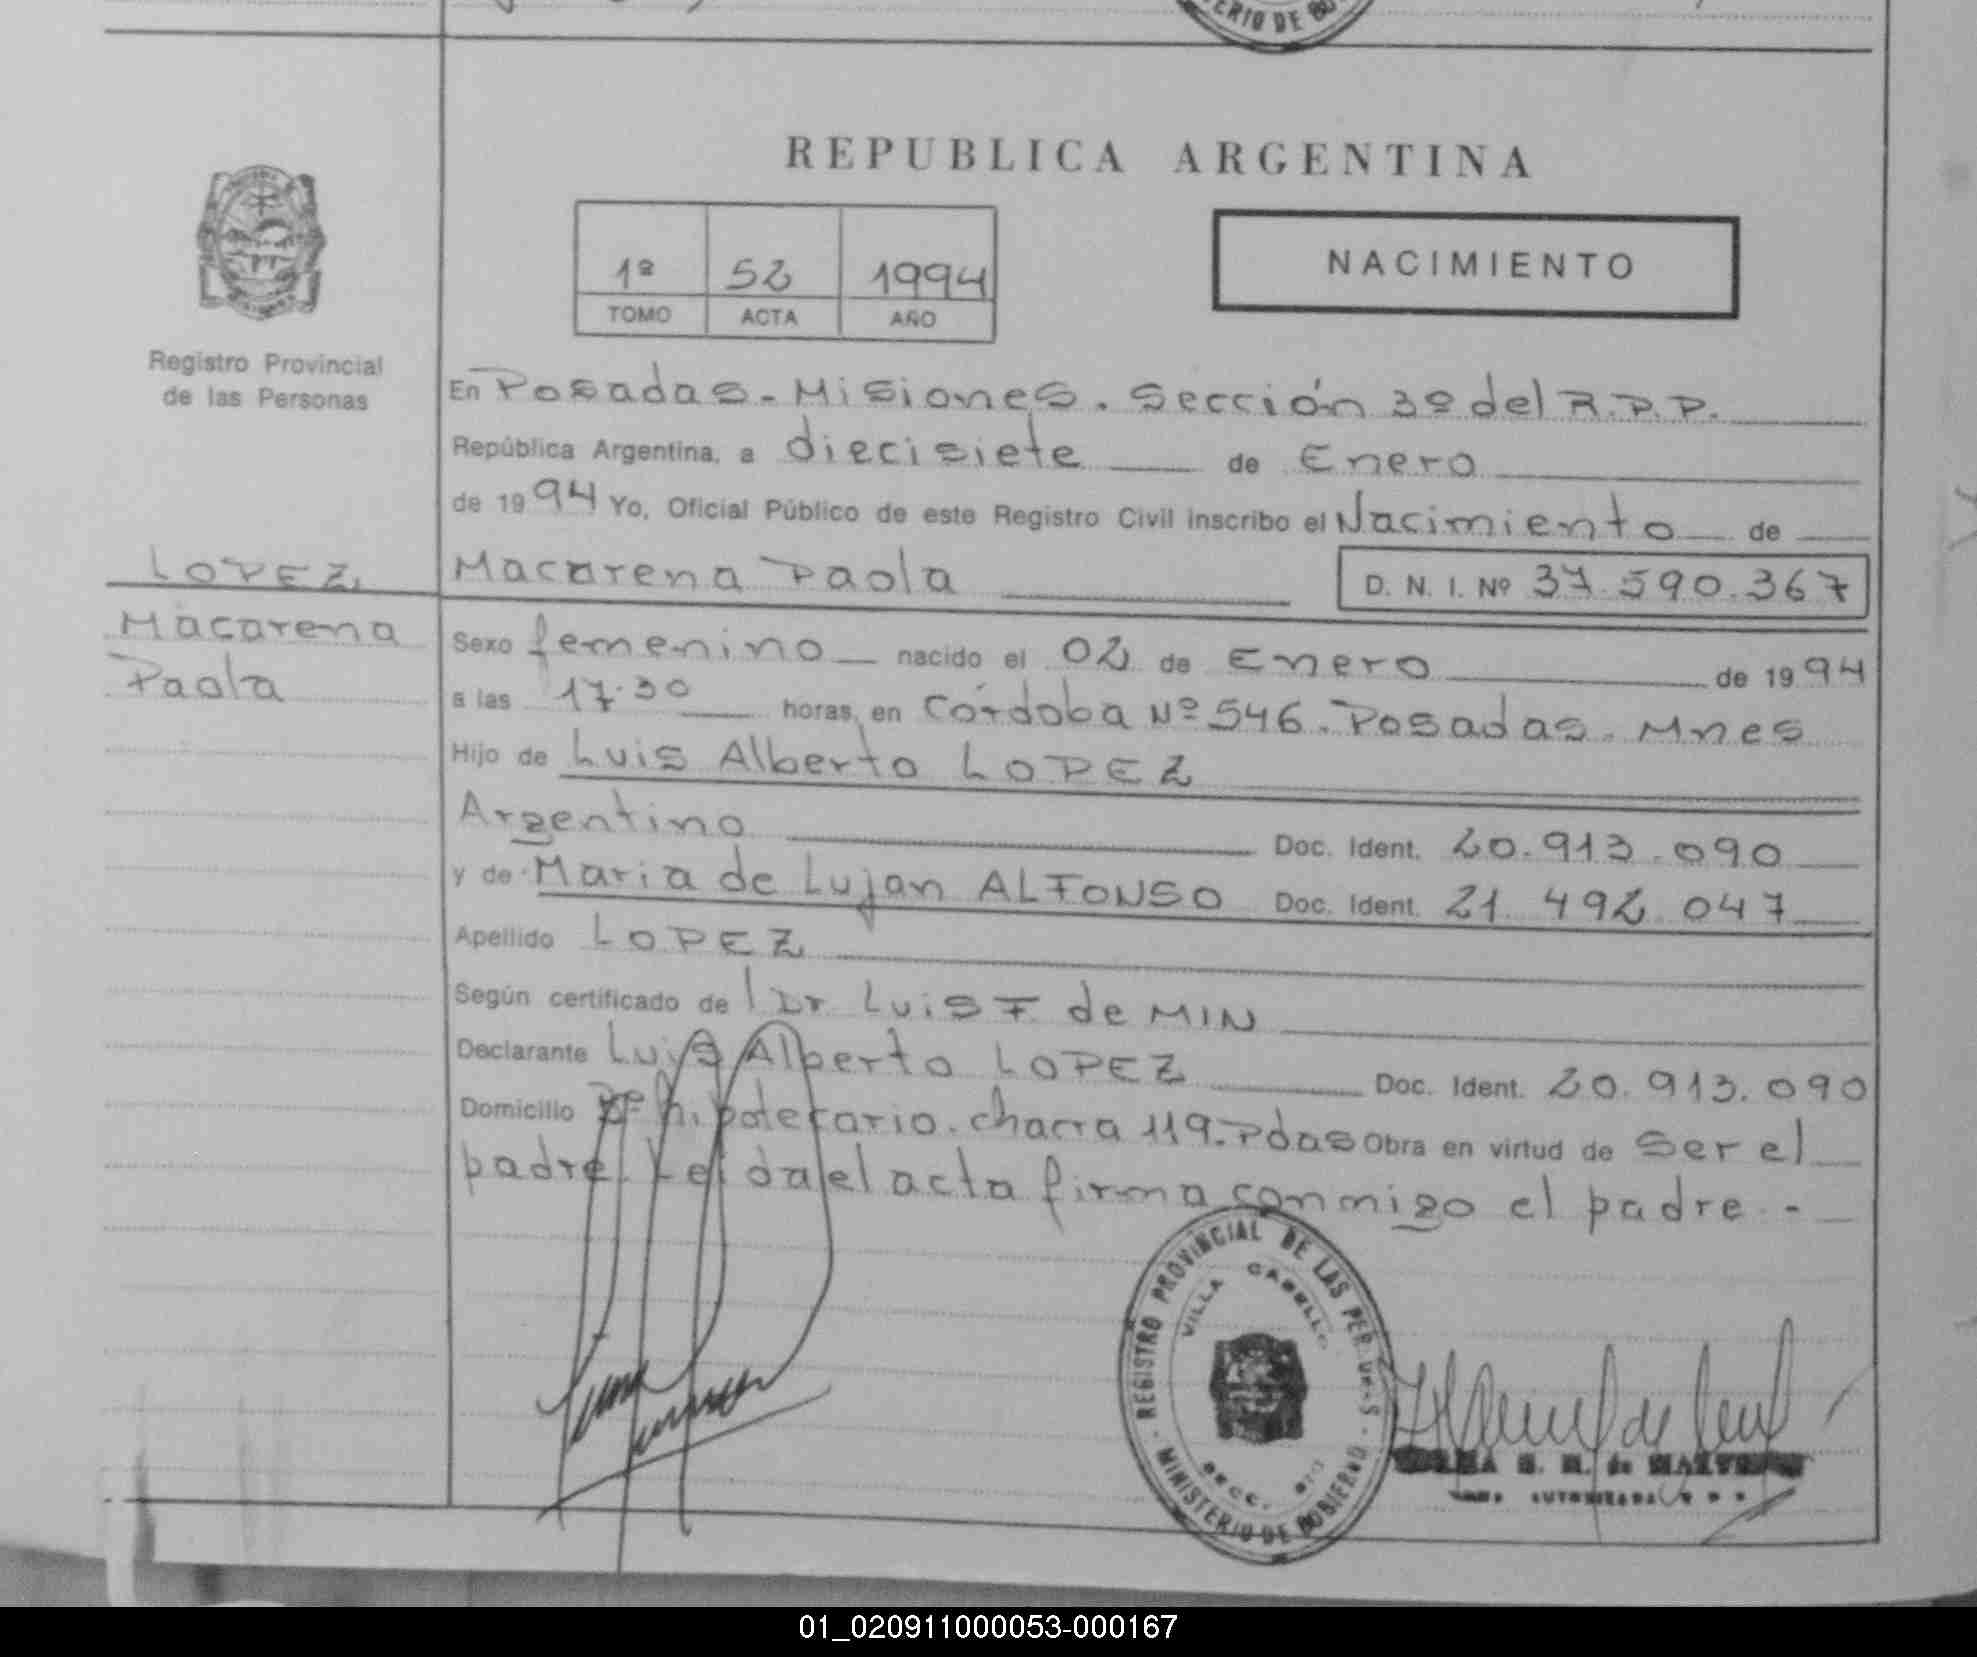 ERIO DE BO
REPUBLICA ARGENTINA
1º 52 1994
TOMO ACTA AÑO
NACIMIENTO
Registro Provincial
de las Personas
En Posadas - Misiones. Sección 3º del R.P.P.
República Argentina, a diecisiete de Enero
de 1994 Yo, Oficial Público de este Registro Civil inscribo el Nacimiento de
Macarena Paola D. N. I. Nº 37.590.367
LOPEZ
Macarena
Paola
Sexo femenino nacido el 02 de Enero de 1994
a las 17.30 horas, en Córdoba Nº 546. Posadas. Mnes
Hijo de Luis Alberto LOPEZ
Argentino Doc. Ident. 20.913.090
y de Maria de Lujan ALFONSO Doc. Ident. 21.492.047
Apellido LOPEZ
Según certificado de l Dr. Luis F. de MIN
Declarante Luis Alberto LOPEZ Doc. Ident. 20.913.090
Domicilio Bº hipotecario. chacra 119. Pdas Obra en virtud de ser el
padre. Leida el acta firma conmigo el padre. -
REGISTRO PROVINCIAL DE LAS PERSONAS
VILLA CABELLO
SECC.
MINISTERIO DE GOBIERNO
01_020911000053-000167